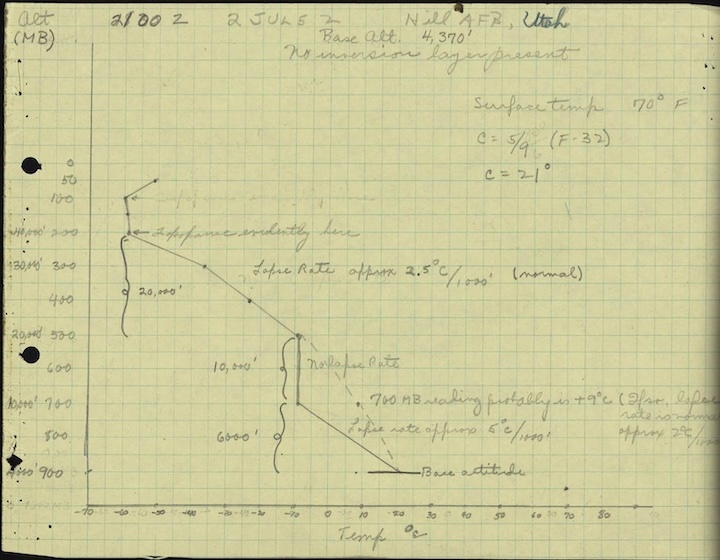 Alt 2100 Z 2 JUL 52 Hill AFB, Utah
(MB) Base Alt. 4,370'
No inversion layer present
Surface temp 70° F
C = 5/9 (F-32)
C = 21°
0
50
100
40,000' 200 Tropopause evidently here
30,000' 300 Lapse Rate approx 2.5°C/1000' (normal)
400 20,000'
20,000' 500
600 10,000' No Lapse Rate
10,000' 700 700 MB reading probably is +9°C (If so, lapse
rate is normal
800 6000' Lapse rate approx 5°C/1000' approx 2°C/1000
900 Base altitude
-70 -60 -50 -40 -30 -20 -10 0 10 20 30 40 50 60 70 80
Temp °C